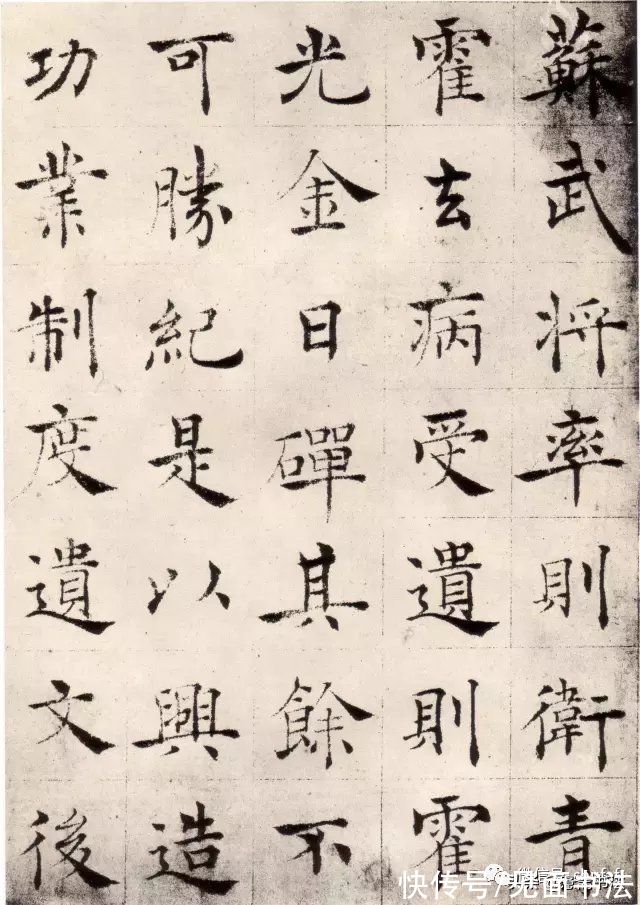 蘇武将率則衛青
霍去病受遺則霍
光金日磾其餘不
可勝紀是以興造
功業制度遺文後
快传号/见面书法